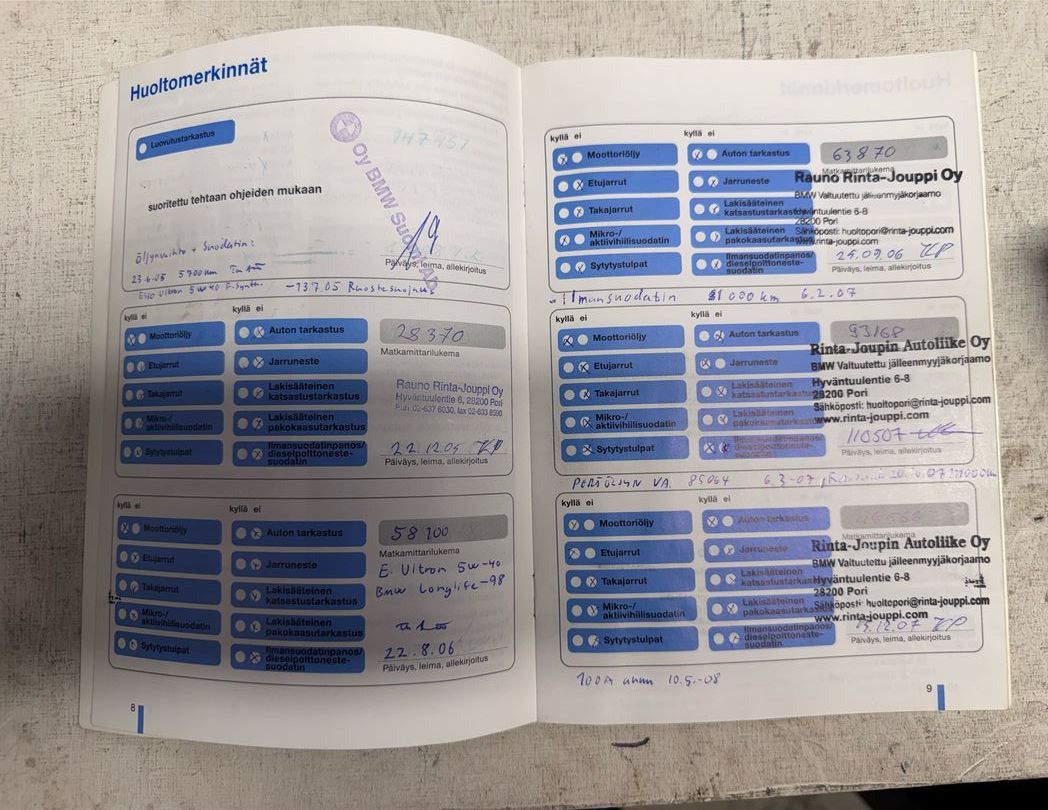 Huoltomerkinnät
Luovutustarkastus
suoritettu tehtaan ohjeiden mukaan
Oy BMW Suomi Ab
Päiväys, leima, allekirjoitus
Öljynvaihto + Suodatin:
23.6.05 5700 km
Esso Ultron 5W40 -13.7.05 Ruostesuojaus
kyllä ei kyllä ei
Moottoriöljy Auton tarkastus 28370
Matkamittarilukema
Etujarrut Jarruneste
Takajarrut Lakisääteinen katsastustarkastus
Rauno Rinta-Jouppi Oy
Hyväntuulentie 6, 28200 Pori
Puh. 02-637 6030, fax 02-633 8590
Mikro-/aktiivihiilisuodatin Lakisääteinen pakokaasutarkastus
Sytytystulpat Ilmansuodatinpanos/dieselpolttoneste-suodatin
22.12.05
Päiväys, leima, allekirjoitus
kyllä ei kyllä ei
Moottoriöljy Auton tarkastus 58100
Matkamittarilukema
Etujarrut Jarruneste
E. Ultron 5W-40
Takajarrut Lakisääteinen katsastustarkastus
BMW Longlife-98
Mikro-/aktiivihiilisuodatin Lakisääteinen pakokaasutarkastus
Sytytystulpat Ilmansuodatinpanos/dieselpolttoneste-suodatin
22.8.06
Päiväys, leima, allekirjoitus
8
kyllä ei kyllä ei
Moottoriöljy Auton tarkastus 63870
Matkamittarilukema
Rauno Rinta-Jouppi Oy
Etujarrut Jarruneste
BMW Valtuutettu jälleenmyyjäkorjaamo
Takajarrut Lakisääteinen katsastustarkastus
Hyväntuulentie 6-8
28200 Pori
Mikro-/aktiivihiilisuodatin Lakisääteinen pakokaasutarkastus
Sähköposti: huoltopori@rinta-jouppi.com
www.rinta-jouppi.com
Sytytystulpat Ilmansuodatinpanos/dieselpolttoneste-suodatin
25.09.06
Päiväys, leima, allekirjoitus
Ilmansuodatin 81000 km 6.2.07
kyllä ei kyllä ei
Moottoriöljy Auton tarkastus 93168
Rinta-Joupin Autoliike Oy
Etujarrut Jarruneste
BMW Valtuutettu jälleenmyyjäkorjaamo
Takajarrut Lakisääteinen katsastustarkastus
Hyväntuulentie 6-8
28200 Pori
Mikro-/aktiivihiilisuodatin Lakisääteinen pakokaasutarkastus
Sähköposti: huoltopori@rinta-jouppi.com
www.rinta-jouppi.com
Sytytystulpat Ilmansuodatinpanos/dieselpolttoneste-suodatin
110507
Päiväys, leima, allekirjoitus
PERÄÖLJYN VA 85064 6.3-07
kyllä ei kyllä ei
Moottoriöljy Auton tarkastus
Matkamittarilukema
Rinta-Joupin Autoliike Oy
Etujarrut Jarruneste
BMW Valtuutettu jälleenmyyjäkorjaamo
Takajarrut Lakisääteinen katsastustarkastus
Hyväntuulentie 6-8
28200 Pori
Mikro-/aktiivihiilisuodatin Lakisääteinen pakokaasutarkastus
Sähköposti: huoltopori@rinta-jouppi.com
www.rinta-jouppi.com
Sytytystulpat Ilmansuodatinpanos/dieselpolttoneste-suodatin
Päiväys, leima, allekirjoitus
10.5.-08
9